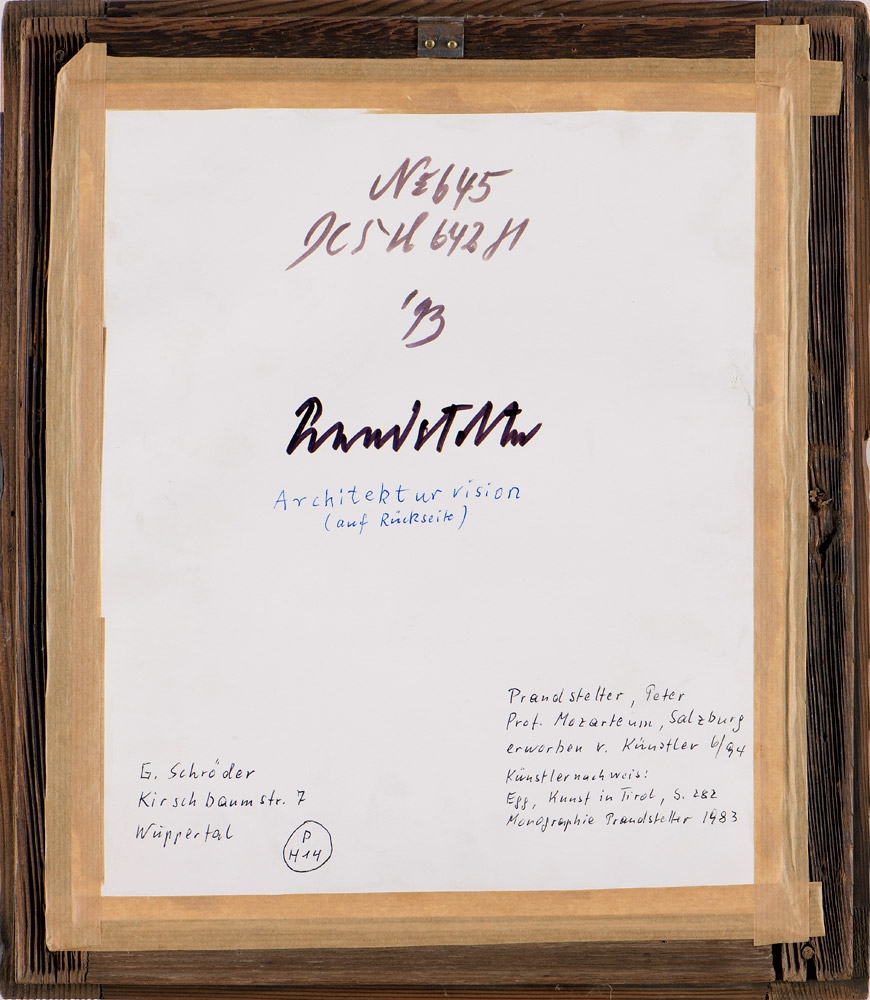 № 645
'93
Prandstetter
Architekturvision
(auf Rückseite)
Prandstetter, Peter
Prof. Mozarteum, Salzburg
erworben v. Künstler 6/94
Künstlernachweis:
Egg, Kunst in Tirol, S. 282
Monographie Prandstetter 1983
G. Schröder
Kirschbaumstr. 7
Wuppertal
P
H14